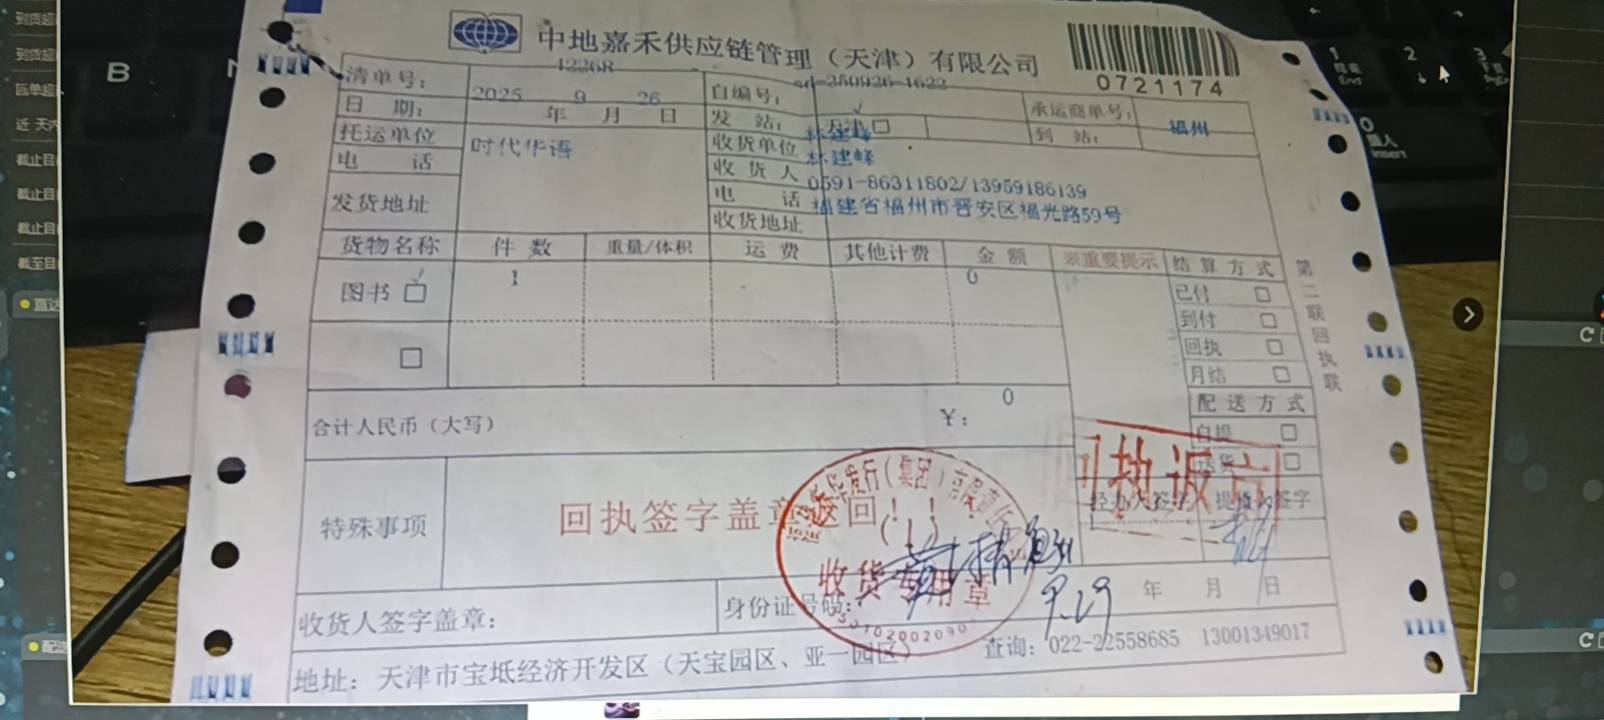 中地嘉禾供应链管理（天津）有限公司
0721174
清单号： 4226R 自编号： sd-250926-1622 承运商单号：
日 期： 2025 年 9 月 26 日 发 站： 天津 到 站： 福州
托运单位 时代华语 收货单位 林建峰
电 话 收 货 人 林建峰
电 话 0591-86311802/13959186139
发货地址 收货地址 福建省福州市晋安区福光路59号
货物名称 件 数 重量/体积 运 费 其他计费 金 额 ※重要提示 结 算 方 式
图书 1 0 已付
到付
回执
月结
配 送 方 式
合计人民币（大写） ¥： 0
自提
送货
特殊事项 回执签字盖章返回！！！
经办人签字 提货人签字
收货人签字盖章： 身份证号码： 年 月 日
9.29
收货专用章
地址：天津市宝坻经济开发区（天宝园区、亚一园区） 查询：022-22558685 13001349017
第二联回执联
B
1
End
2
3
PgDn
0
Insert
到货超
到货超
回单超
近 天内
截止目
截止目
截止目
截至目
直达